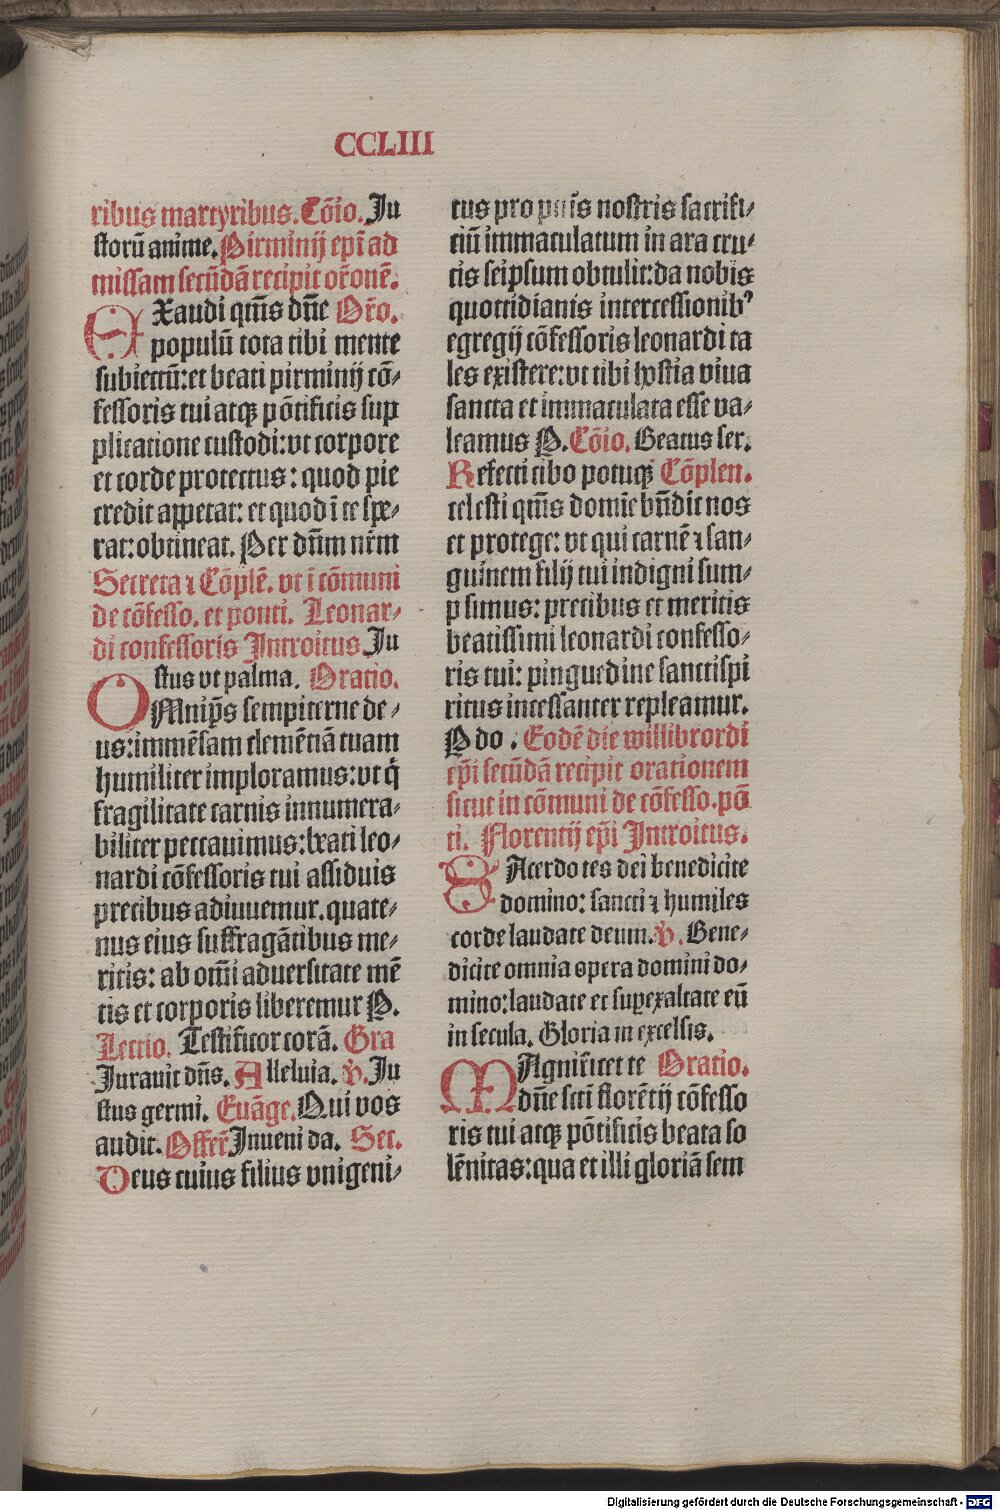 CCLIII
ribus martyribus. Cōio. Ju
storū anime. Pirminij ep̄i ad
missam secūdā recipit or̄onē.
EXaudi qm̄s dn̄e Or̄o.
populū tota tibi mente
subiectū: et beati pirminij cō⸗
fessoris tui atqꝫ pōtificis sup
plicatione custodi: vt corpore
et corde protectus: quod pie
credit appetat: et quod ī te spe⸗
rat: obtineat. Per dn̄m nr̄m
Secreta ⁊ Cōplē. vt ī cōmuni
de cōfesso. et ponti. Leonar⸗
di confessoris Introitus Ju
stus vt palma. Oratio.
OMnip̄s sempiterne de⸗
us: immēsam clemētiā tuam
humiliter imploramus: vt q̄
fragilitate carnis innumera⸗
biliter peccauimus: beati leo⸗
nardi cōfessoris tui assiduis
precibus adiuuemur. quate⸗
nus eius suffragātibus me⸗
ritis: ab om̄i aduersitate mē
tis et corporis liberemur P.
Lectio. Testificor corā. Gra
Jurauit dn̄s. Alleluia. v̄. Ju
stus germi. Euāge. Qui vos
audit. Offer̄ Inueni da. Sec.
Deus cuius filius vnigeni⸗
tus pro pn̄is nostris sacrifi⸗
ciū immaculatum in ara cru⸗
cis seipsum obtulit: da nobis
quottidianis intercessionibꝰ
egregij cōfessoris leonardi ta
les existere: vt tibi hostia viua
sancta et immaculata esse va⸗
leamus P. Cōio. Beatus ser.
Refecti cibo potuqꝫ Cōplen.
celesti qm̄s domīe bn̄dic nos
et protege: vt qui carnē ⁊ san⸗
guinem filij tui indigni sum⸗
psimus: precibus et meritis
beatissimi leonardi confesso⸗
ris tui: pinguedine sancti spi
ritus incessanter repleamur.
P do. Eodē die willibrordi
ep̄i secūdā recipit orationem
sicut in cōmuni de cōfesso. pō
ti. Florentij ep̄i Introitus.
SAcerdotes dei benedicite
domino: sancti ⁊ humiles
corde laudate deum. v̄. Bene⸗
dicite omnia opera domini do⸗
mino: laudate et superexaltate eū
in secula. Gloria in excelsis.
MAgnificet te Oratio.
dn̄e scti florētij cōfesso
ris tui atqꝫ pōtificis beata so
lēnitas: qua et illi gloriā sem
Digitalisierung gefördert durch die Deutsche Forschungsgemeinschaft - DFG